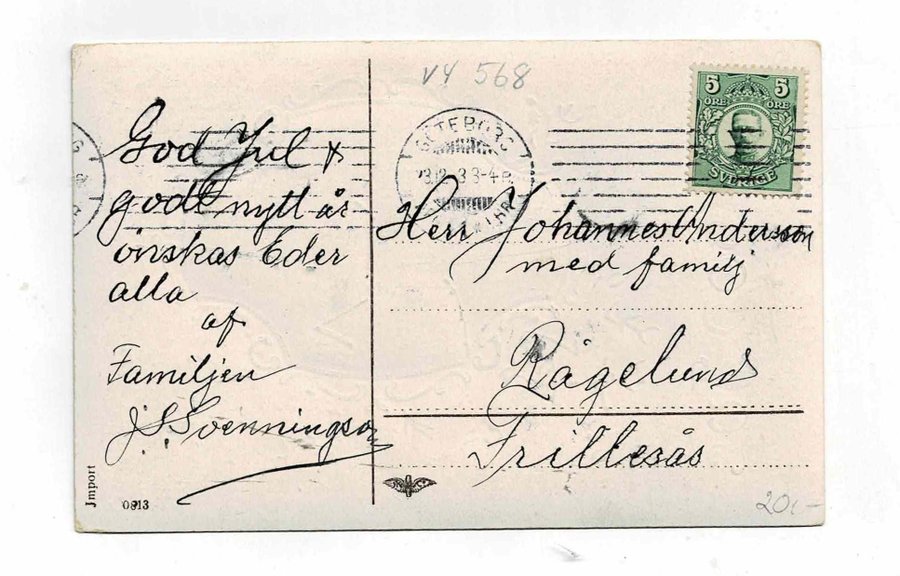 VY 568
God Jul &
godt nytt år
önskas Eder
alla
af
Familjen
J.S. Svenningson
Jmport
0813
GÖTEBORG
5 5
ÖRE ÖRE
SVERIGE
Herr Johannes Andersson
med familj
Rågelund
Frillesås
20:-